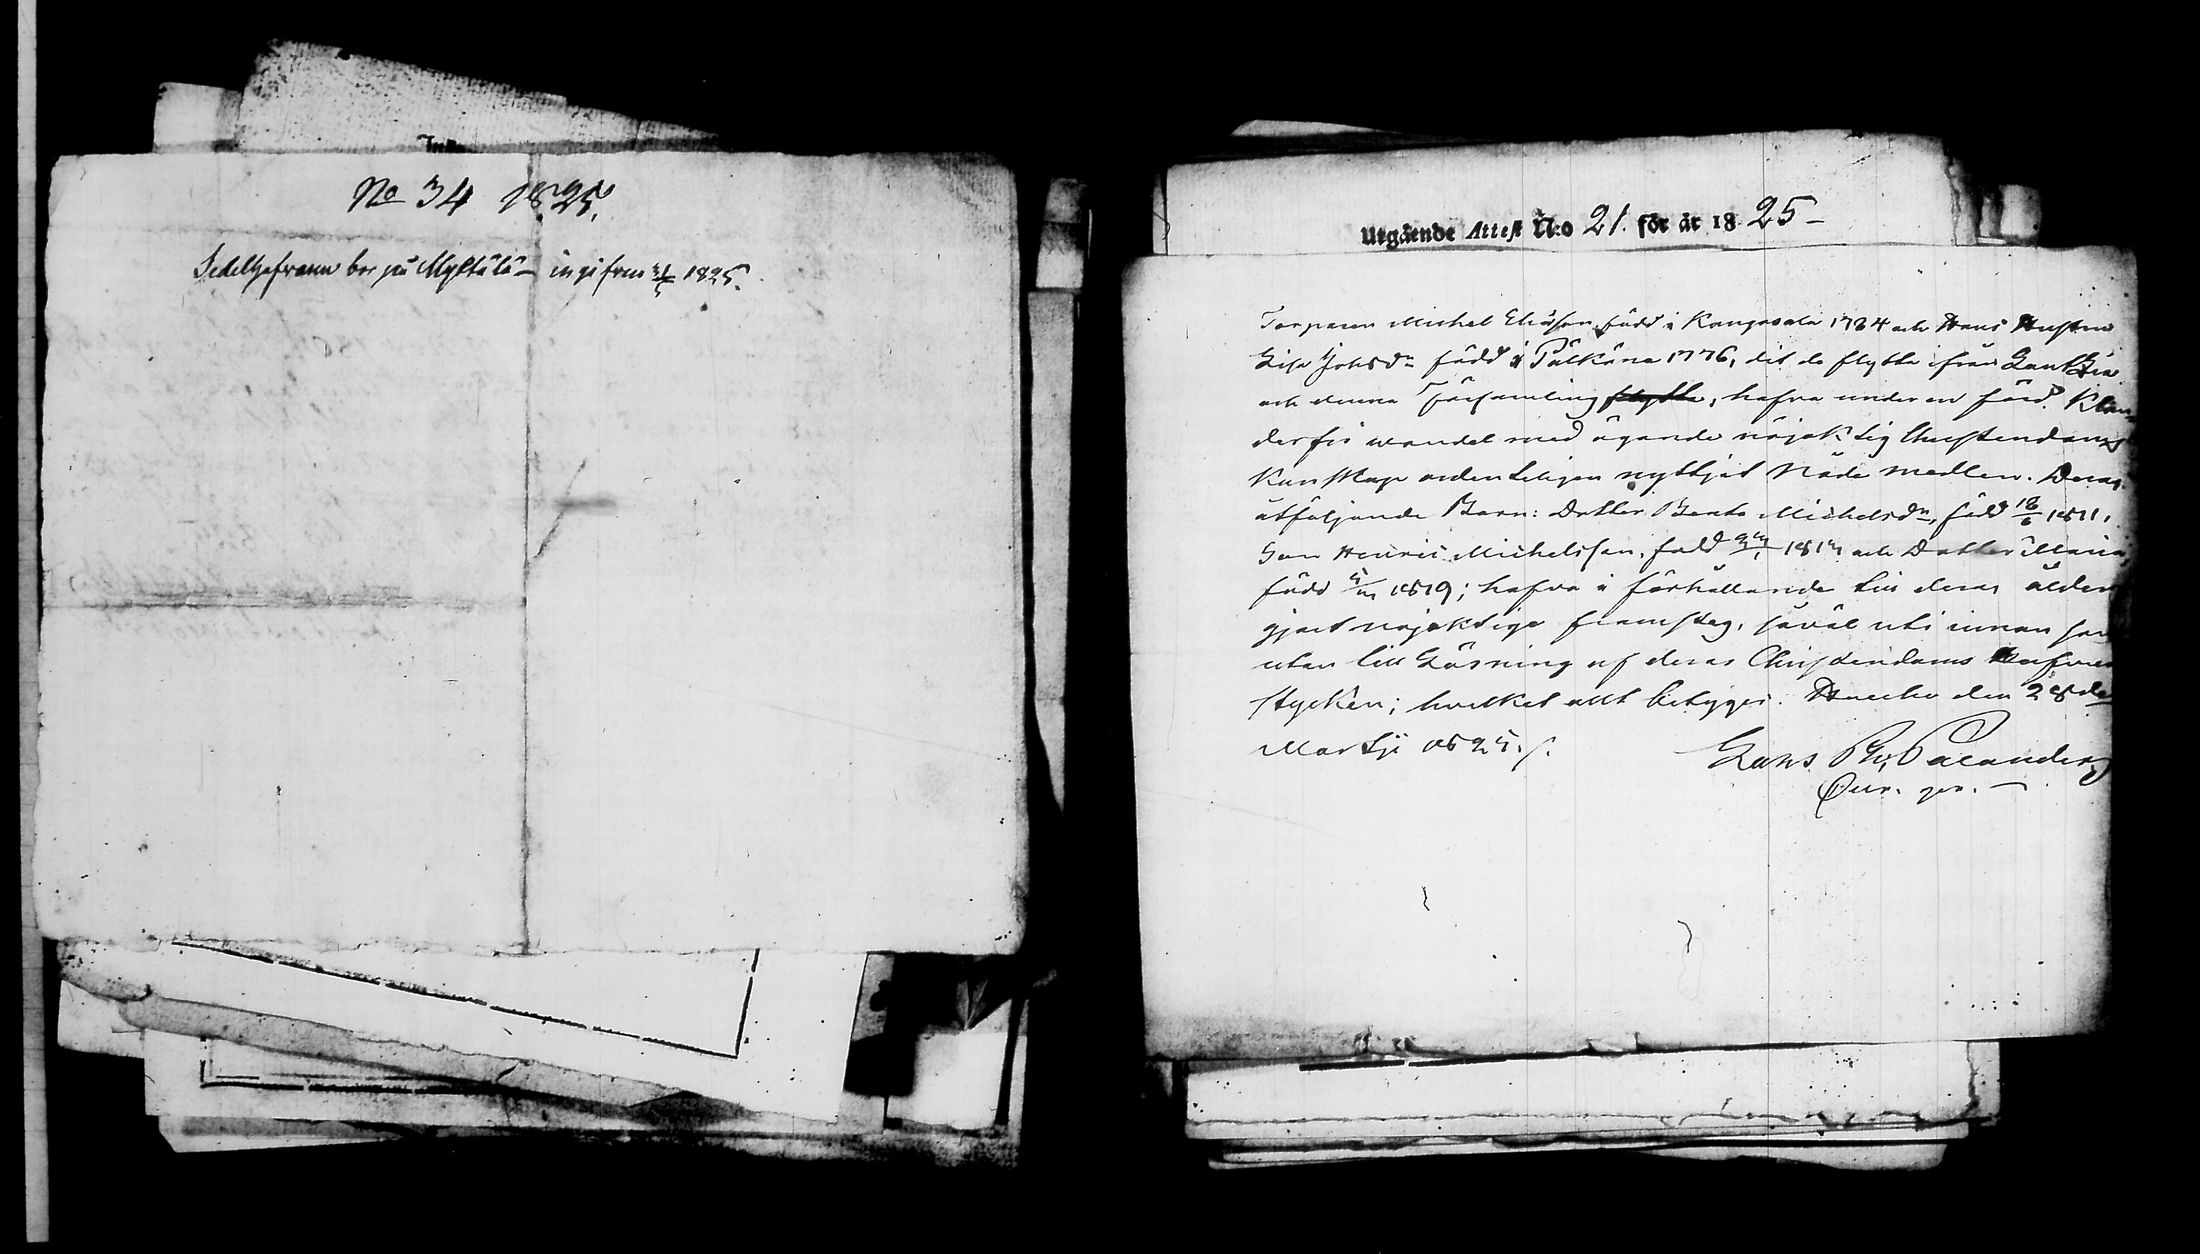 No 34 1825.
Sedelhafvaren bor på Myttälä – ingifven 31/5 1825.
Utgående Attest N:o 21. för år 1825 –
Torparen Michel Eliasson, född i Kangasala 1784 och Hans Hustru
Lisa Johsd:r född i Pälkäne 1776, dit de flytta ifrån
och denna Församling flytta, hafva under en förd Klan-
derfri wandel med ägande nöjaktig Christendoms
Kunskap ordenteligen nyttjat Nåde medlen. Deras
åtföljande Barn: Dotter Beata Michelsd:r, född 18/6 1811,
Son Henric Michelsson, född och Dotter Maria,
född 1819; hafva i förhållande till deras ålder
gjort nöjaktiga framsteg, såväl uti innan som
utan till Läsning af deras Christendoms
stycken; hvilket allt betygges. Hauho den 28de
Martji 1825.
Palander